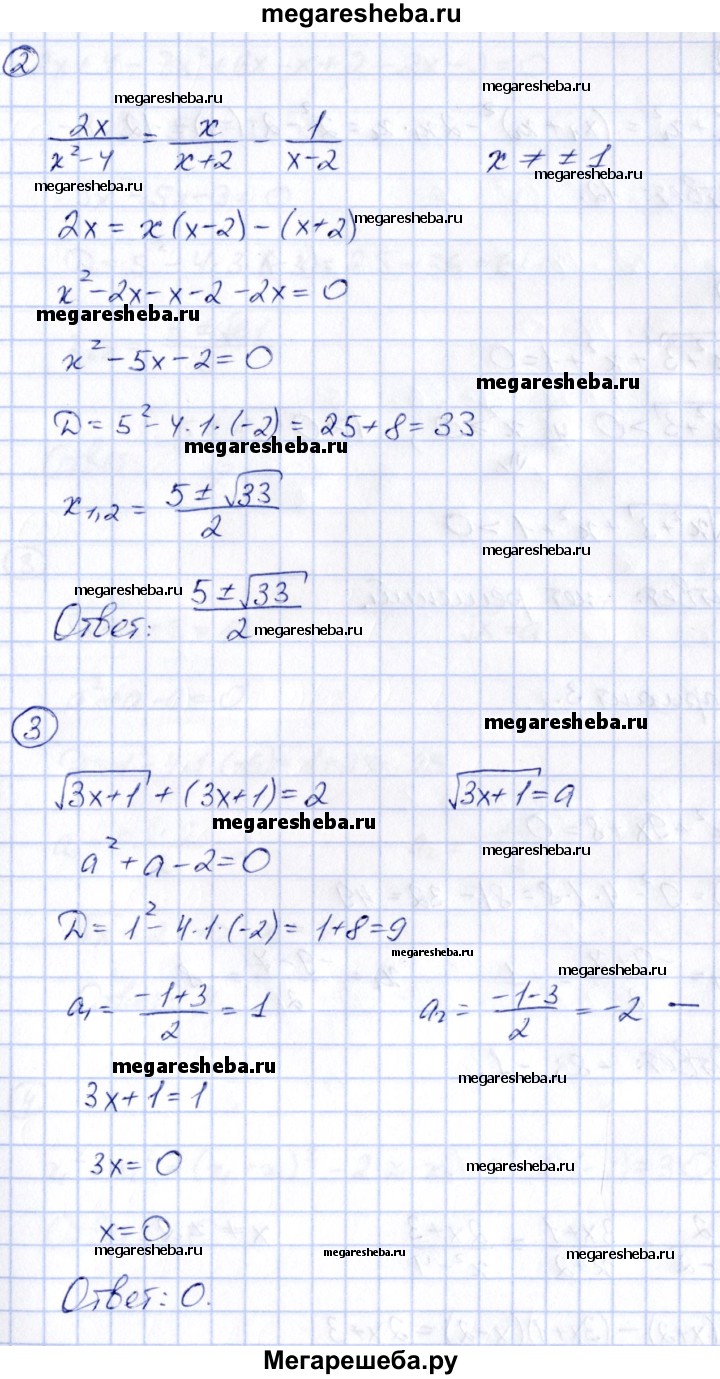 megaresheba.ru
2
megaresheba.ru megaresheba.ru
2x/(x²-4) = x/(x+2) - 1/(x-2) x ≠ ± 1
megaresheba.ru megaresheba.ru
2x = x(x-2) - (x+2) megaresheba.ru
x² - 2x - x - 2 - 2x = 0
megaresheba.ru
x² - 5x - 2 = 0
megaresheba.ru
D = 5² - 4·1·(-2) = 25 + 8 = 33
megaresheba.ru
x₁,₂ = (5 ± √33)/2
megaresheba.ru
megaresheba.ru
Ответ: (5 ± √33)/2
megaresheba.ru
3
megaresheba.ru
√(3x+1) + (3x+1) = 2 √(3x+1) = a
megaresheba.ru
a² + a - 2 = 0 megaresheba.ru
D = 1² - 4·1·(-2) = 1 + 8 = 9
megaresheba.ru
megaresheba.ru
a₁ = (-1+3)/2 = 1 a₂ = (-1-3)/2 = -2 —
megaresheba.ru
megaresheba.ru
3x + 1 = 1
3x = 0 megaresheba.ru
x = 0
megaresheba.ru megaresheba.ru megaresheba.ru
Ответ: 0.
Мегарешеба.ру